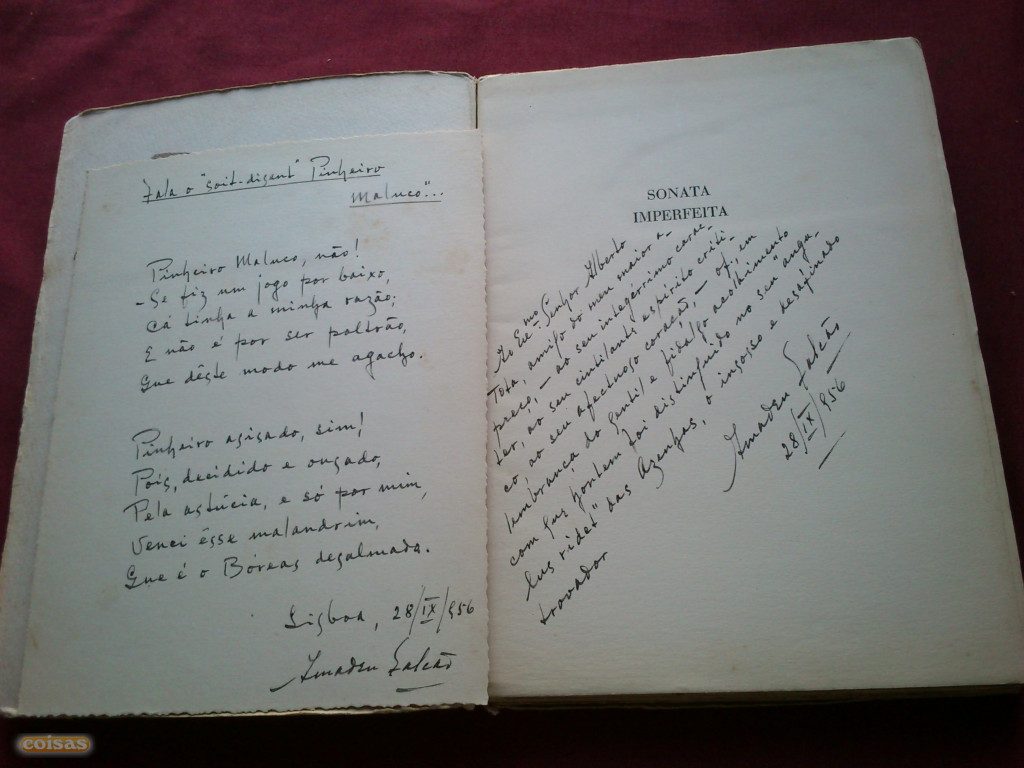 Fala o "soit-disant" Pinheiro
Maluco"...
Pinheiro Maluco, não!
- Se fiz um jogo por baixo,
Cá tinha a minha razão;
E não é por ser poltrão,
Que dêste modo me agacho.
Pinheiro asisado, sim!
Pois, decidido e ousado,
Pela astúcia, e só por mim,
Venci êsse malandrim,
Que é o Bóreas desalmado.
Lisboa, 28/IX/956
Amadeu Falcão
SONATA
IMPERFEITA
Ao Exmo Senhor Alberto
Tota, amigo do meu maior a-
prêço, - ao seu integérrimo carác-
ter, ao seu cintilante espírito críti-
co, ao seu afectuoso coração, - of., em
lembrança do gentil e fidalgo acolhimento
com que hontem foi distinguido no seu "angu-
lus ridet" das Azenhas, o insosso e desafinado
trovador
Amadeu Falcão
28/IX/956
coisas